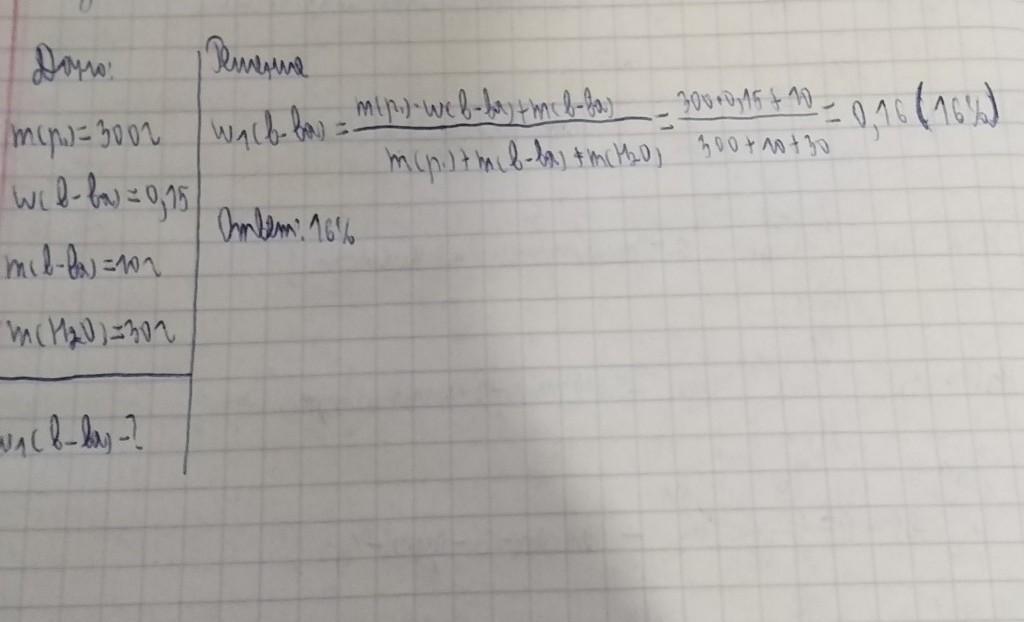 Дано:
m(р.)=300г
w(в-ва)=0,15
m(в-ва)=10г
m(H2O)=30г
w1(в-ва)-?
Решение
w1(в-ва) = m(р.)·w(в-ва)+m(в-ва) / m(р.)+m(в-ва)+m(H2O) = 300·0,15+10 / 300+10+30 = 0,16 (16%)
Ответ: 16%